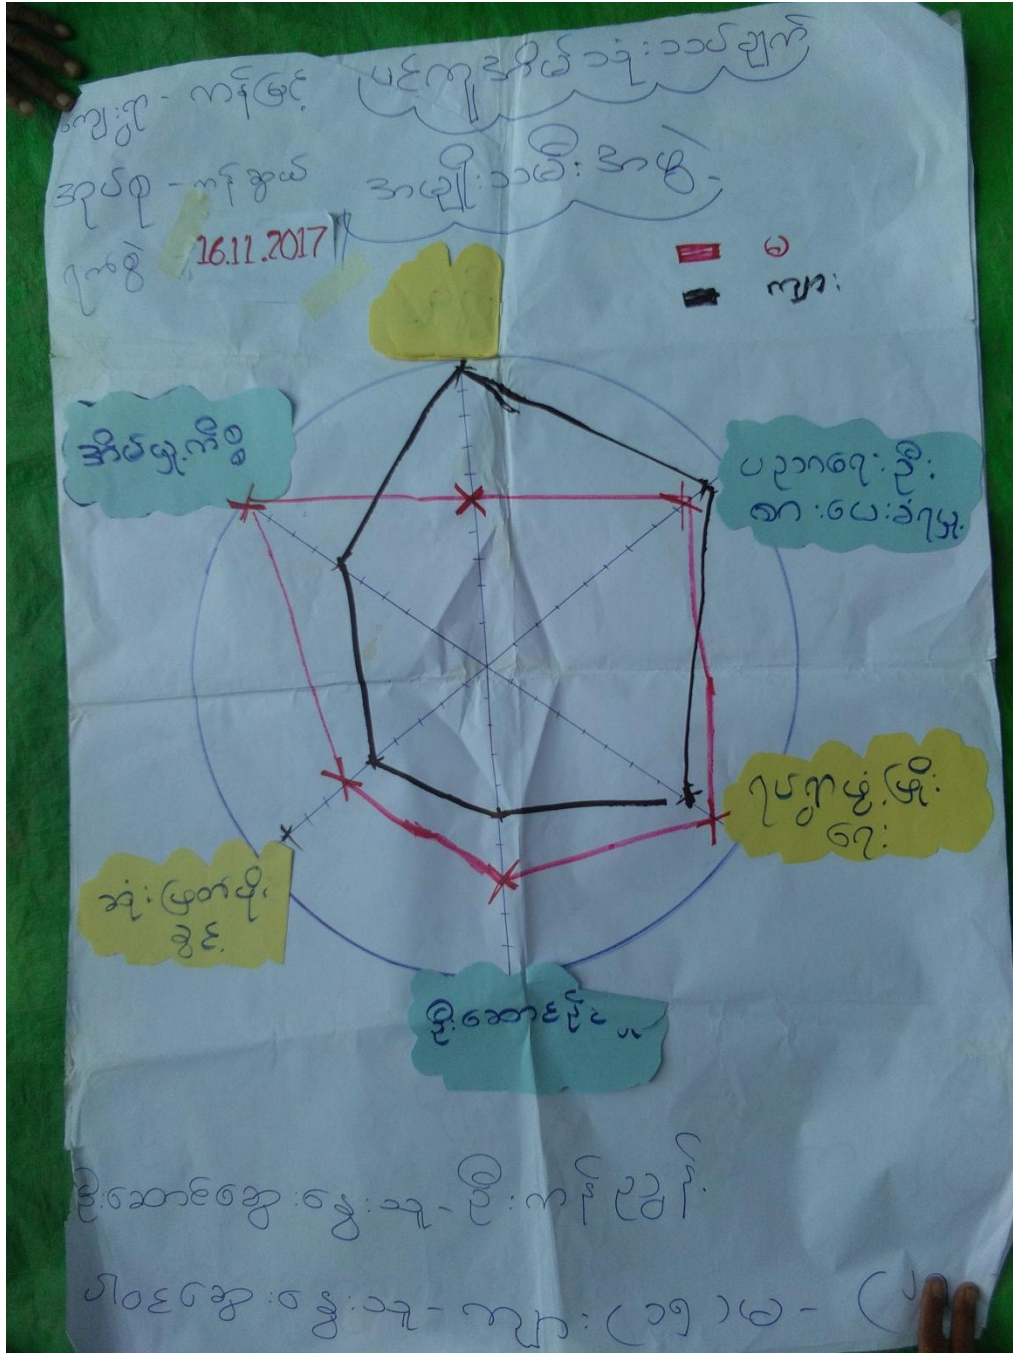 ကျေးရွာ - ကန်မြင့် ပင့်ကူအိမ်သုံးသပ်ချက်
အုပ်စု - ကန်ဆွယ် အမျိုးသမီးအဖွဲ့
ရက်စွဲ 16.11.2017
မ
ကျား
အိမ်မှုကိစ္စ
ပညာရေးဦး
စားပေးခံရမှု
ရပ်ရွာဖွံ့ဖြိုး
ရေး
ဆုံးဖြတ်ပိုင်
ခွင့်
ဦးဆောင်နိုင်မှု
ဦးဆောင်ဆွေးနွေးသူ - ဦးကန်ညွန့်
ပါဝင်ဆွေးနွေးသူ - ကျား (၁၅) မ - (၂